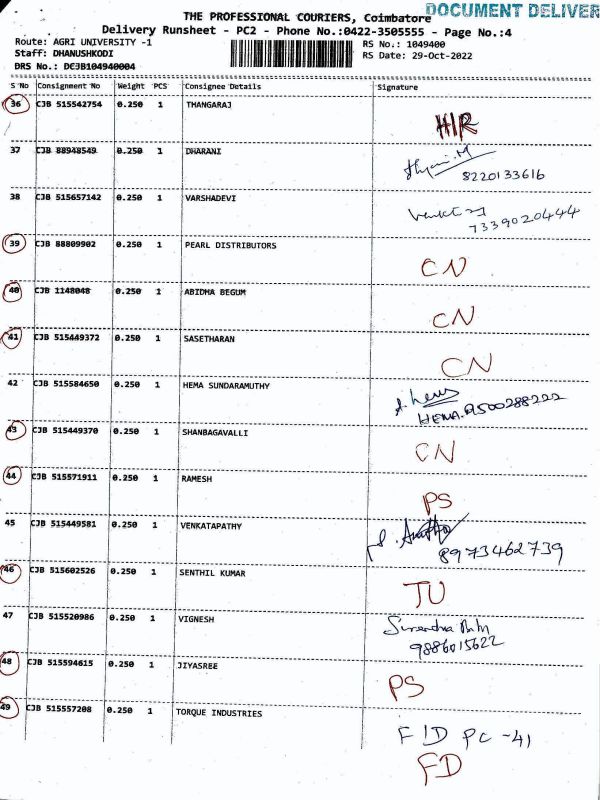 DOCUMENT DELIVER
THE PROFESSIONAL COURIERS, Coimbatore
Delivery Runsheet - PC2 - Phone No.:0422-3505555 - Page No.:4
Route: AGRI UNIVERSITY -1 RS No.: 1049400
Staff: DHANUSHKODI RS Date: 29-Oct-2022
DRS No.: DCJB104940004
S No Consignment No Weight PCS Consignee Details Signature
36 CJB 515542754 0.250 1 THANGARAJ
HIR
37 CJB 88948549 0.250 1 DHARANI
8220133616
38 CJB 515657142 0.250 1 VARSHADEVI
7339020444
39 CJB 88809902 0.250 1 PEARL DISTRIBUTORS
CN
40 CJB 1148048 0.250 1 ABIDHA BEGUM
CN
41 CJB 515449372 0.250 1 SASETHARAN
CN
42 CJB 515584650 0.250 1 HEMA SUNDARAMUTHY
HEMA.9500288222
43 CJB 515449370 0.250 1 SHANBAGAVALLI
CN
44 CJB 515571911 0.250 1 RAMESH
PS
45 CJB 515449581 0.250 1 VENKATAPATHY
8973462739
46 CJB 515602526 0.250 1 SENTHIL KUMAR
TU
47 CJB 515520986 0.250 1 VIGNESH
9886015622
48 CJB 515594615 0.250 1 JIYASREE
PS
49 CJB 515557208 0.250 1 TORQUE INDUSTRIES
FID PC -41
FD